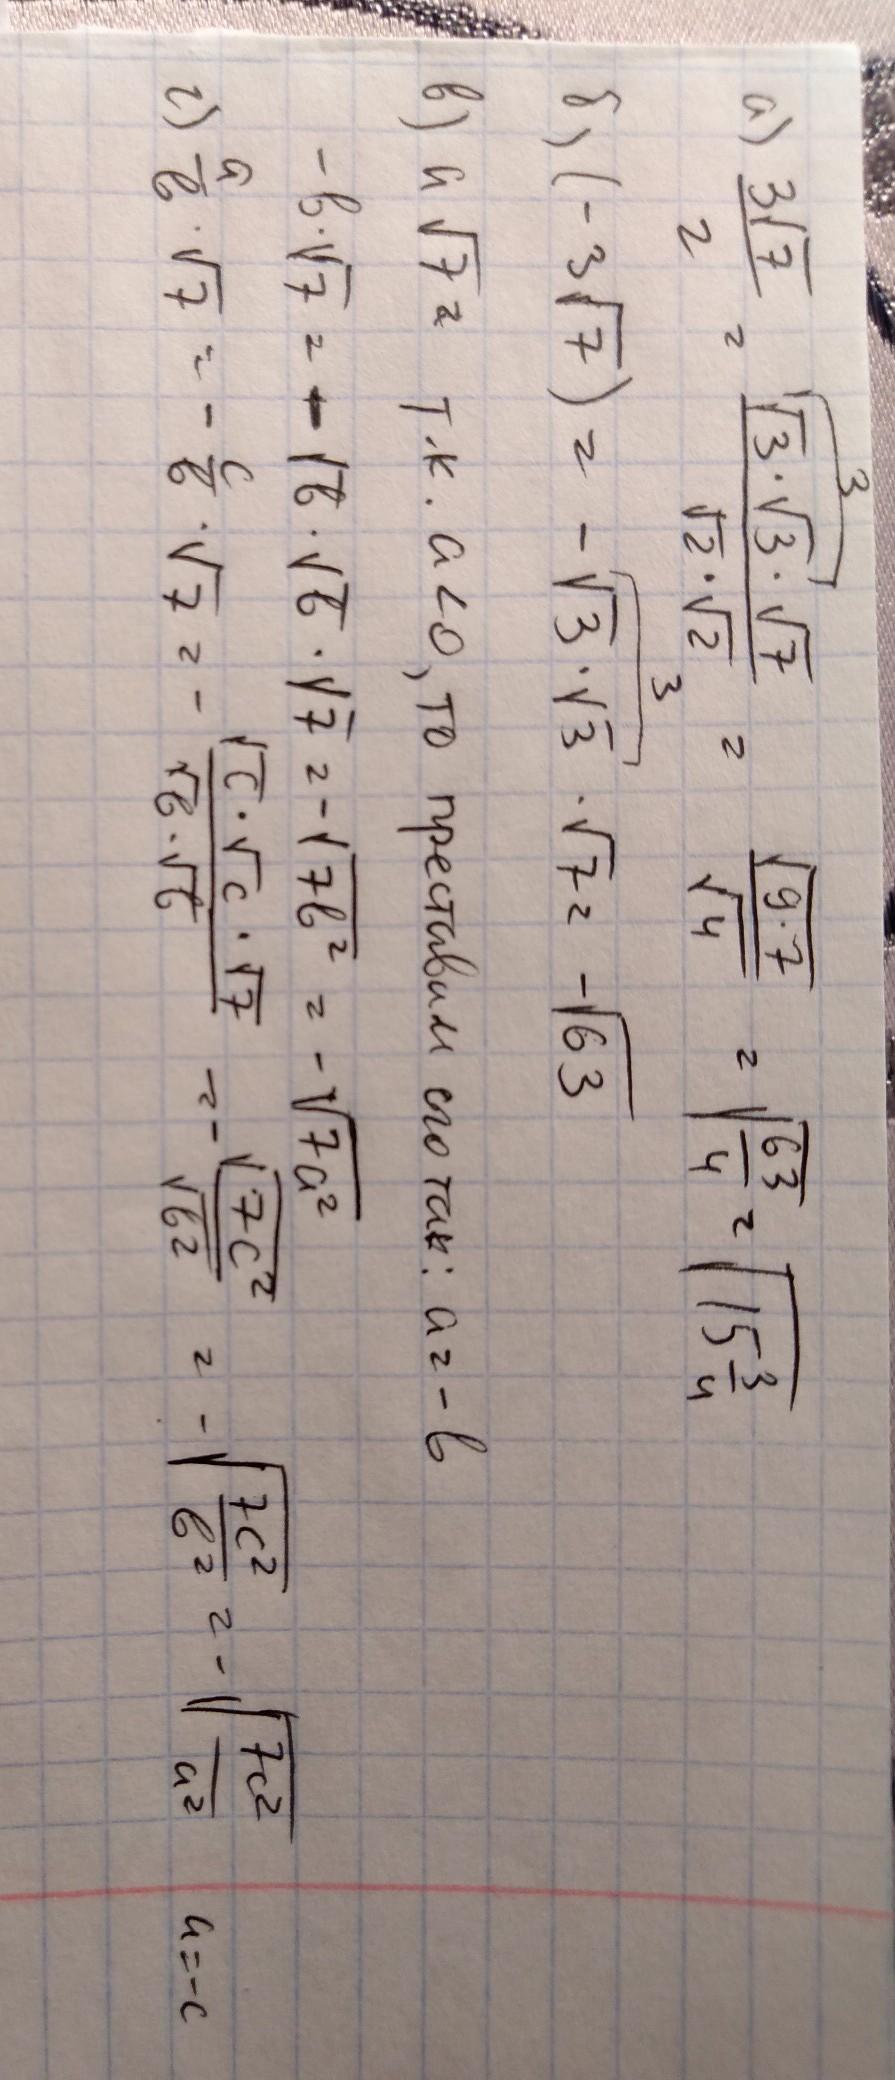 а) 3√7/2 = (√3·√3·√7)/(√2·√2) = √(9·7)/√4 = √(63/4) = √(15 3/4)
3
б) (-3√7) = -√3·√3·√7 = -√63
3
в) a√7 = т.к. a<0, то преставим его так: a=-b
-b·√7 = -√b·√b·√7 = -√(7b²) = -√(7a²)
г) a/b·√7 = -c/b·√7 = -(√c·√c·√7)/(√b·√b) = -√(7c²)/√b² = -√(7c²/b²) = -√(7c²/a²) a=-c